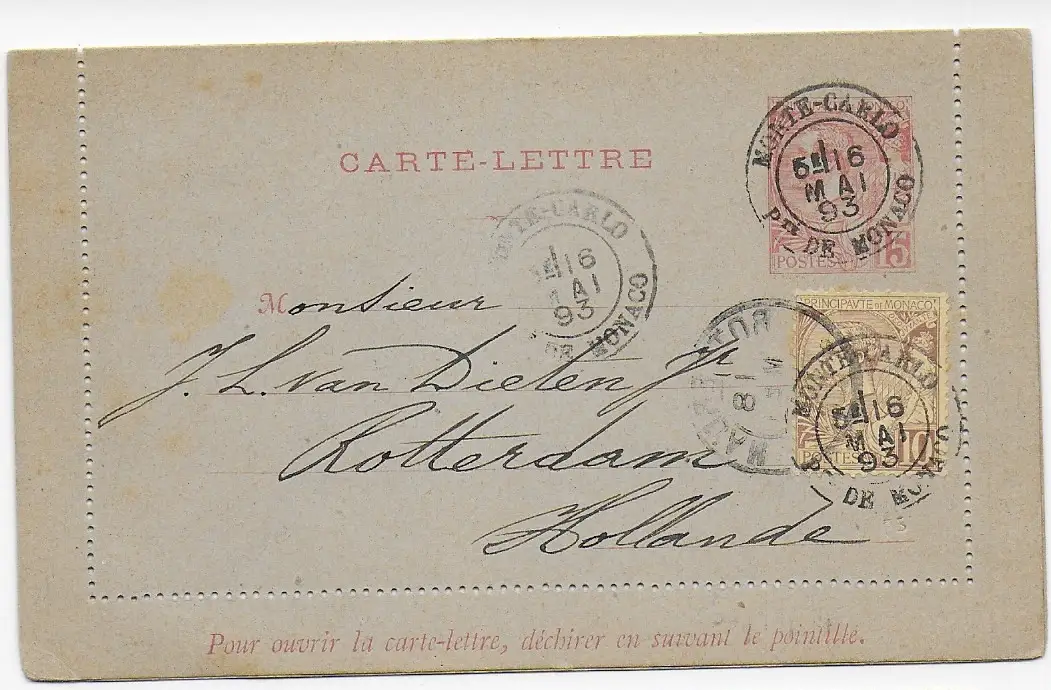 CARTE-LETTRE
MONTE-CARLO
5E 16
MAI
93
PTÉ DE MONACO
POSTES 15
MONTE-CARLO
16
MAI
93
DE MONACO
Monsieur
J. L. van Dieten Jr
Rotterdam
Hollande
PRINCIPAVTE DE MONACO
MONTE-CARLO
5E 16
MAI
93
DE MONACO
POSTES 10
18
Pour ouvrir la carte-lettre, déchirer en suivant le pointillé.